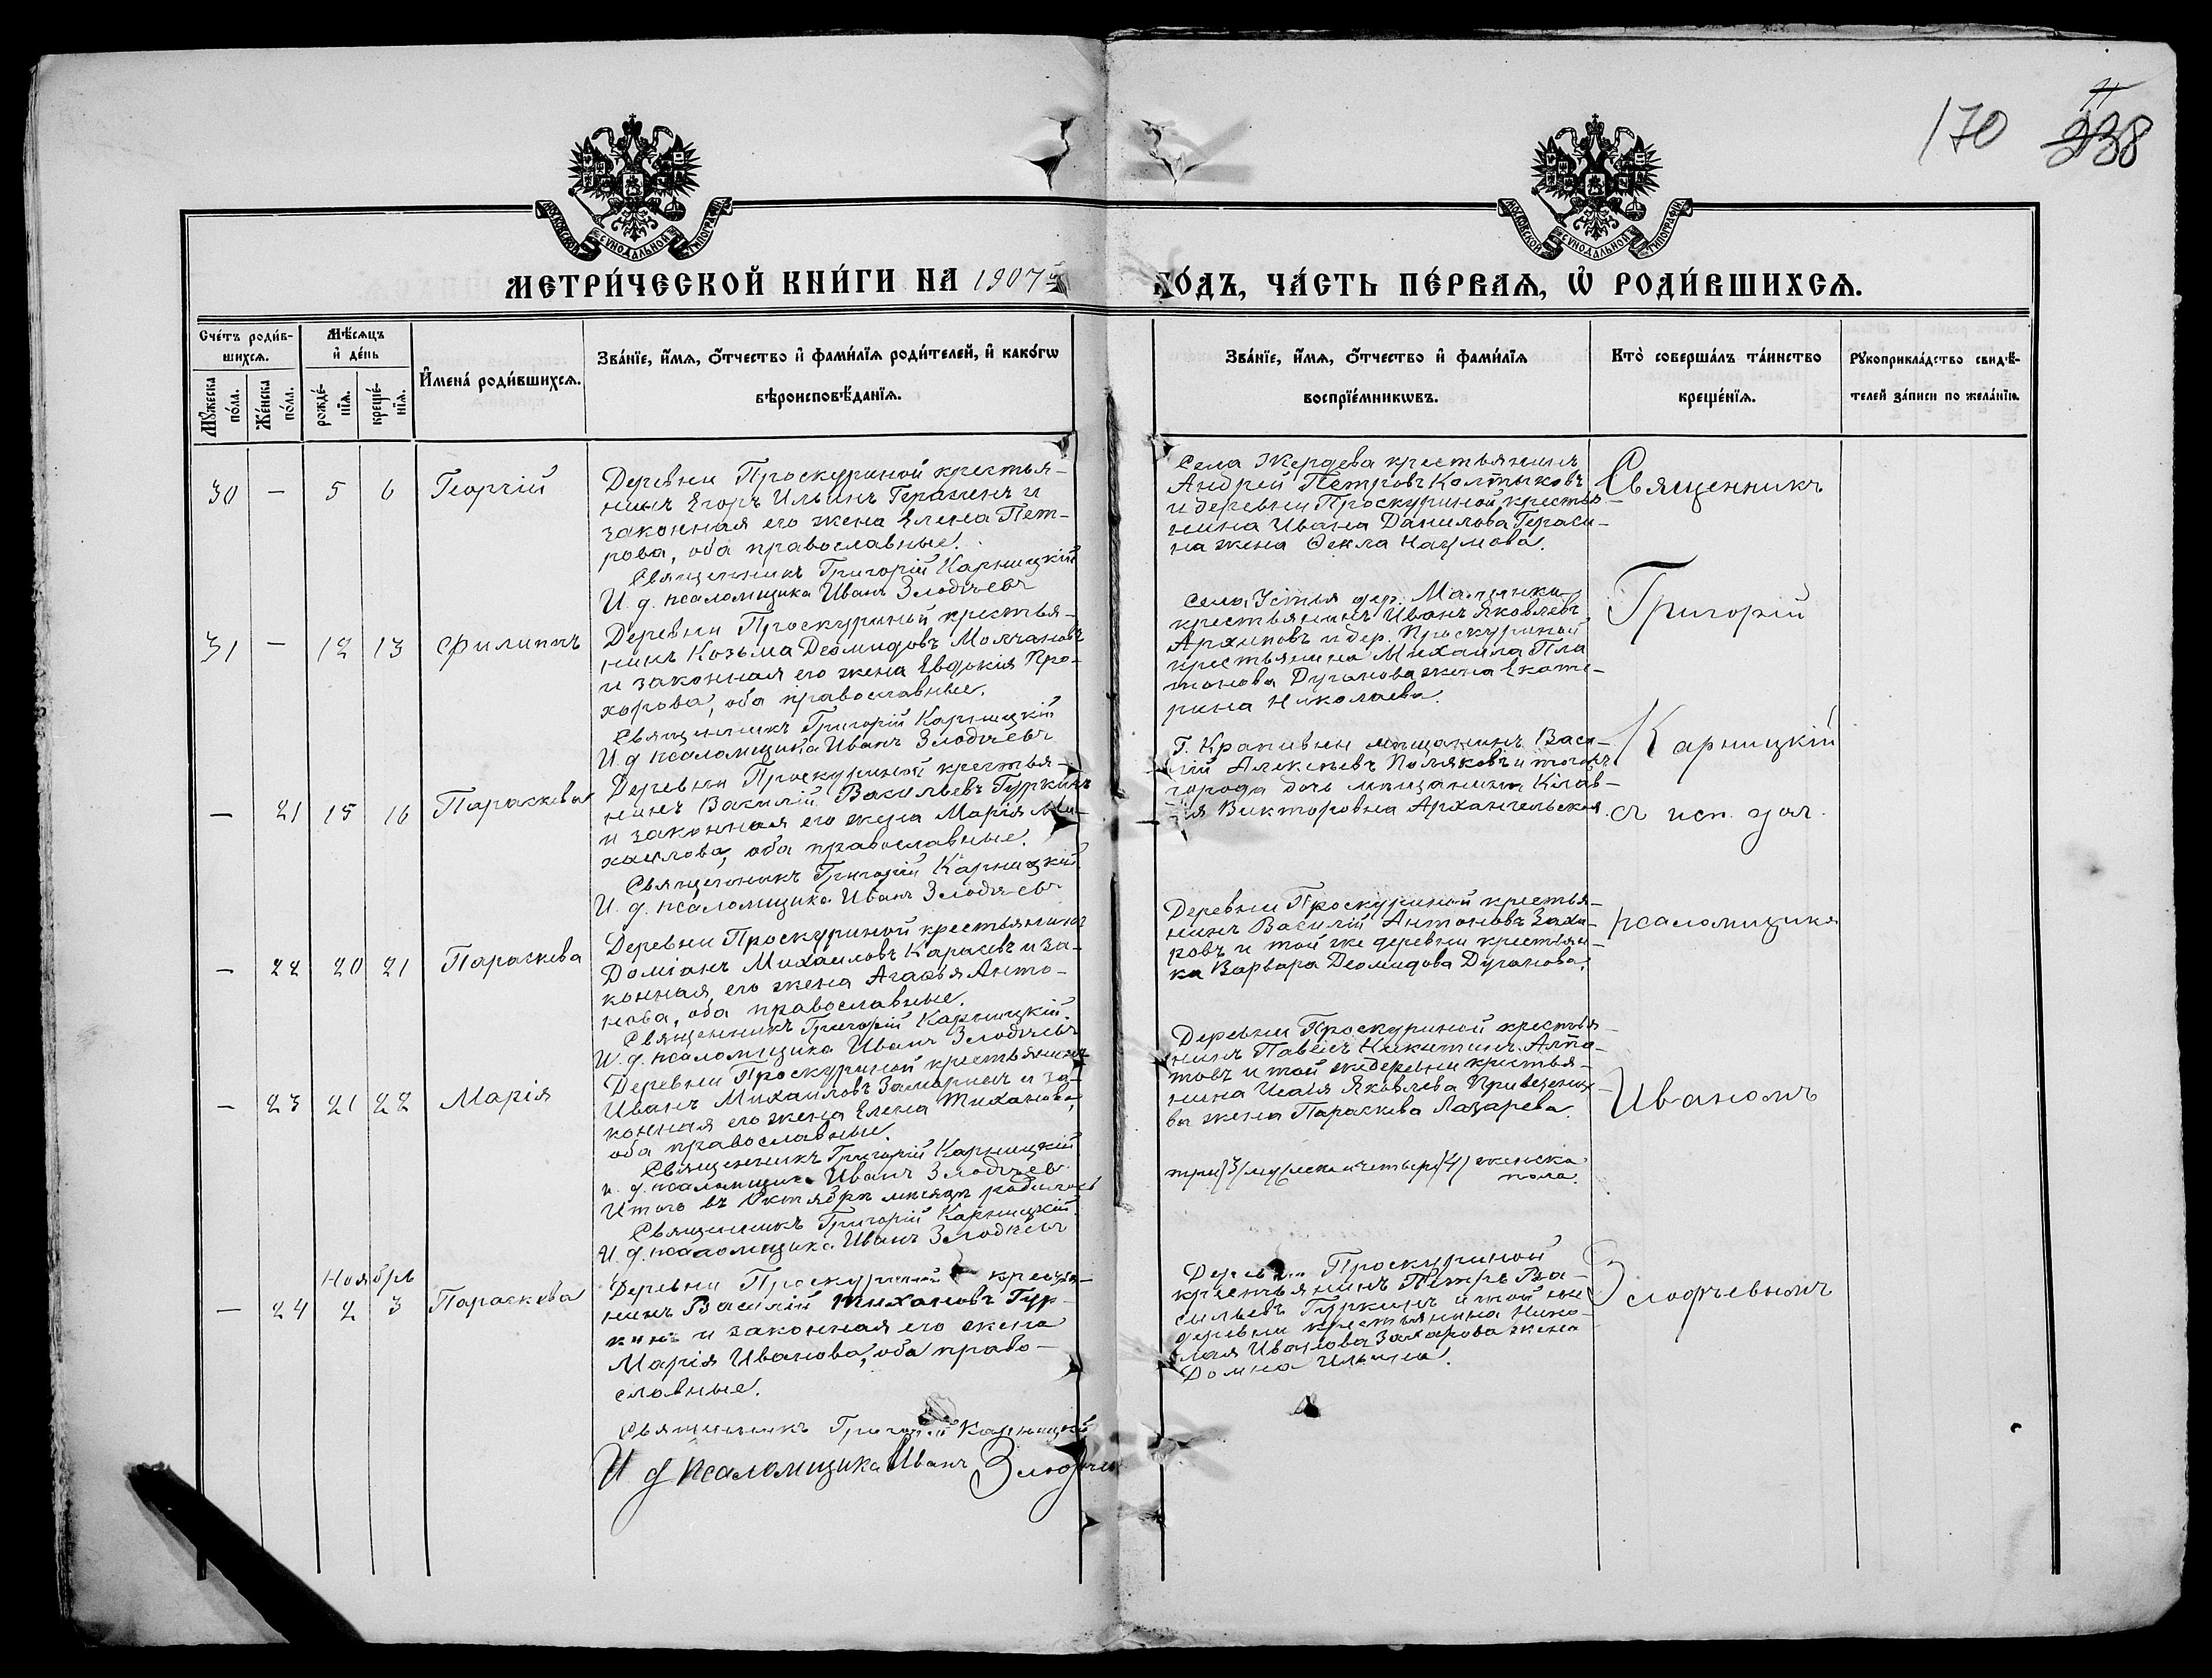 170 338
МОСКОВСКОЙ СѴНОДАЛЬНОЙ ТИПОГРАФІИ
МОСКОВСКОЙ СѴНОДАЛЬНОЙ ТИПОГРАФІИ
МЕТРИ́ЧЕСКОЙ КНИ́ГИ НА 1907й ГО́ДЪ, ЧА́СТЬ ПЕ́РВАѦ, Ѡ҆ РОДИ́ВШИХСѦ.
Сче́тъ роди́в-
шихсѧ.
Мꙋжеска
по́ла.
Же́нска
по́ла.
Мѣ́сѧцъ
и҆ де́нь
рожде́-
нїѧ.
креще́-
нїѧ.
И҆мена̀ роди́вшихсѧ.
Зва́нїе, и҆́мѧ, ѻ҆́тчество и҆ фами́лїѧ роди́телей, и҆ како́гѡ
вѣроисповѣ́данїѧ.
Зва́нїе, и҆́мѧ, ѻ҆́тчество и҆ фами́лїѧ
воспрїе́мникѡвъ.
Кто̀ соверша́лъ та́инство
креще́нїѧ.
Рꙋкоприкла́дство свидѣ́-
телей за́писи по жела́нїю.
30 — 5 6 Георгій
Деревни Проскуриной крестья-
нинъ Егоръ Ильинъ Герасинъ и
законная его жена Елена Пет-
рова, оба православные.
Священникъ Григорій Карницкій
И. д. псаломщика Иванъ Злодѣевъ
Села Жердева крестьянинъ
Андрей Петровъ Колтыковъ
и деревни Проскуриной крестья-
нина Ивана Данилова Гераси-
на жена Ѳекла Наумова.
31 — 12 13 Филиппъ
Деревни Проскуриной крестья-
нинъ Козьма Деомидовъ Молчановъ
и законная его жена Евдокія Про-
хорова, оба православные.
Священникъ Григорій Карницкій
И. д. псаломщика Иванъ Злодѣевъ
Села Устья дер.
крестьянинъ Иванъ Яковлевъ
Архиповъ и дер. Проскуриной
крестьянина Михаила Пла
тонова Дуганова жена Екате-
рина Николаева.
— 21 15 16 Параскева
Деревни Проскуриной крестья-
нинъ Василій Васильевъ Гуркинъ
и законная его жена Марія Ми-
хаилова, оба православные.
Священникъ Григорій Карницкій.
И. д. псаломщика Иванъ Злодѣевъ
Г. Крапивны мѣщанинъ Васи-
лій Алексѣевъ Поляковъ и того жъ
города дочь мѣщанина Клав-
дія Викторовна Архангельская.
— 22 20 21 Параскева
Деревни Проскуриной крестьянинъ
Доміанъ Михаиловъ Карасевъ и за-
конная его жена Агаѳья Анто-
нова, оба православные.
Священникъ Григорій Карницкій.
И. д. псаломщика Иванъ Злодѣевъ
Деревни Проскуриной крестья-
нинъ Василій Антоновъ Заха-
ровъ и той же деревни крестьян-
ка Варвара Деомидова Дуганова.
— 23 21 22 Марія
Деревни Проскуриной крестьянинъ
Иванъ Михаиловъ Замаринъ и за-
конная его жена Елена Тиханова,
оба православные.
Священникъ Григорій Карницкій
и. д. псаломщика Иванъ Злодѣевъ
Деревни Проскуриной крестья-
нинъ Павелъ Никитинъ Алпа-
товъ и той же деревни крестья-
нина Исаія Яковлева
ва жена Параскева Лазарева.
Итого въ Октябрѣ мѣсяцѣ родилось
три /3/ мужеска и четыре /4/ женска
пола.
Священникъ Григорій Карницкій.
И. д. псаломщика Иванъ Злодѣевъ
Ноябрь
— 24 2 3 Параскева
Деревни Проскуриной крестья-
нинъ Василій Тихановъ Гур-
кинъ и законная его жена
Марія Иванова, оба право-
славные.
Священникъ Григорій Карницкій
И д псаломщика Иванъ Злодѣевъ
Деревни Проскуриной
крестьянинъ Петръ Ва-
сильевъ Гуркинъ и той же
деревни крестьянина Нико-
лая Иванова Захарова жена
Домна Ильина.
Священникъ
Григорій
Карницкій
съ исп. дол.
псаломщика
Иваномъ
Злодѣевымъ